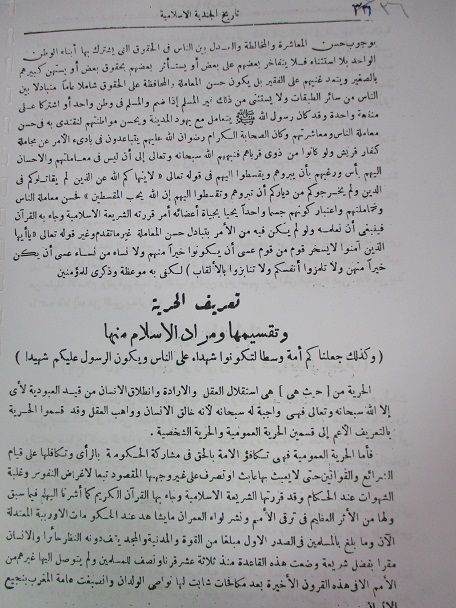 تاريخ الجندية الاسلامية ٣٦
بوجوب حسن المعاشرة والمخالطة والعدل بين الناس فى الحقوق التى يشترك بها أبناء الوطن
الواحد بلا استثناء فلا يتفاخر بعضهم على بعض أو يستأثر بعضهم بحقوق بعض أو يستهين كبيرهم
بالصغير ويتعد غنيهم على الفقير بل يكون حسن المعاملة والمحافظة على الحقوق شاملا عاما متبادلا بين
الناس من سائر الطبقات ولا يستثنى من ذلك غير المسلم إذا ضم والمسلم فى وطن واحد أو اشتركا على
منفعة واحدة وقد كان رسول الله ﷺ يتعامل مع يهود المدينة ويحسن مواطنتهم لنقتدى به فى حسن
معاملة الناس ومعاشرتهم وكان الصحابة الكرام رضوان الله عليهم يتباعدون فى بادىء الامر عن مجاملة
كفار قريش ولو كانوا من ذوى قرباهم فنبههم الله سبحانه وتعالى إلى أن ليس فى معاملتهم والاحسان
اليهم بأس ورغبهم بأن يبروهم ويقسطوا اليهم فى قوله تعالى « لا ينها كم الله عن الذين لم يقاتلوكم فى
الدين ولم يخرجوكم من دياركم أن تبروهم وتقسطوا اليهم إن الله يحب المقسطين » فحسن معاملة الناس
ومجاملتهم واعتبار كونهم جسما واحداً يحيا بحياة أعضائه أمر قررته الشريعة الاسلامية وجاء به القرآن
فينبغى أن نعلمه ولو لم يكن فيه من الأمر بتبادل حسن المعاملة غير ماتقدم وغير قوله تعالى «ياأيها
الذين آمنوا لايسخر قوم من قوم عسى أن يكونوا خيراً منهم ولا نساء من نساء عسى أن يكن
خيراً منهن ولا تلمزوا أنفسكم ولا تنابزوا بالألقاب ) لكفى به موعظة وذكرى للمؤمنين
تعريف الحرية
وتقسيمها ومراد الاسلام منها
( وكذلك جعلنا كم أمة وسطا لتكونوا شهداء على الناس ويكون الرسول عليكم شهيدا )
الحرية من [ حيث هى ] هى استقلال العقل والارادة وانطلاق الانسان من قيد العبودية لأى
إلا لله سبحانه وتعالى فهى واجبة له سبحانه لأنه خالق الانسان وواهب العقل وقد قسموا الحرية
بالتعريف الأعم إلى قسمين الحرية العمومية والحرية الشخصية .
فأما الحرية العمومية فهى تكافؤ الامة بالحق فى مشاركة الحكومة بالرأى وتكافلها على قيام
الشرائع والقوانين حتى لايعبث بها عابث او تصرف على غير وجهها المقصود تبعا لأغراض النفوس وغلبة
الشهوات عند الحكام وقد قررتها الشريعة الاسلامية وجاء بها القرآن الكريم كما أشرنا اليه فيما سبق
ولها من الأثر العظيم فى ترقى الأمم ونشر لواء العمران مايشاهد عند الحكومات الاوربية المعتدلة
الآن وما بلغ بالمسلمين فى الصدر الاول مبلغا من القوة والمدنية والمجد يقف دونه النظر حائراً والانسان
مقراً بفضل شريعة وضعت هذه القاعدة منذ ثلاثة عشر قرنا ونصف للمسلمين ولم يتوصل اليها غيرهم من
الأمم الا فى هذه القرون الأخيرة بعد مكافحات شابت لها نواصى الولدان وانصبغت هامة المغرب بنجيع